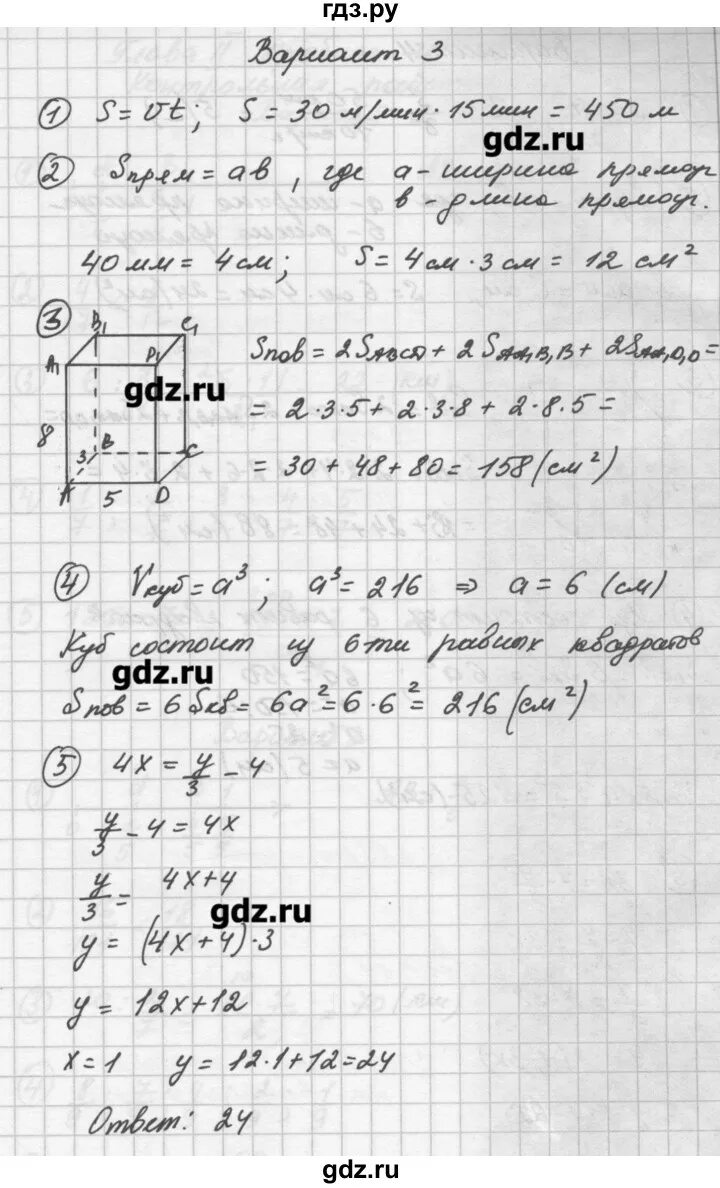 гдз.ру
Вариант 3
① S = υt; S = 30 м/мин · 15 мин = 450 м
gdz.ru
② Sпрям = ab, где a - ширина прямоуг
b - длина прямоуг.
40 мм = 4 см; S = 4 см · 3 см = 12 см²
③ B₁ C₁
A₁ D₁
Sпов = 2SABCD + 2SAA₁B₁B + 2SAA₁D₁D =
gdz.ru
= 2·3·5 + 2·3·8 + 2·8·5 =
8 3 B C
= 30 + 48 + 80 = 158 (см²)
A 5 D
④ Vкуб = a³; a³ = 216 ⇒ a = 6 (см)
Куб состоит из 6-ти равных квадратов
gdz.ru
Sпов = 6Sкв = 6a² = 6·6² = 216 (см²)
⑤ 4x = y/3 - 4
y/3 - 4 = 4x
y/3 = 4x + 4
gdz.ru
y = (4x + 4)·3
y = 12x + 12
x = 1 y = 12·1 + 12 = 24
Ответ: 24
gdz.ru